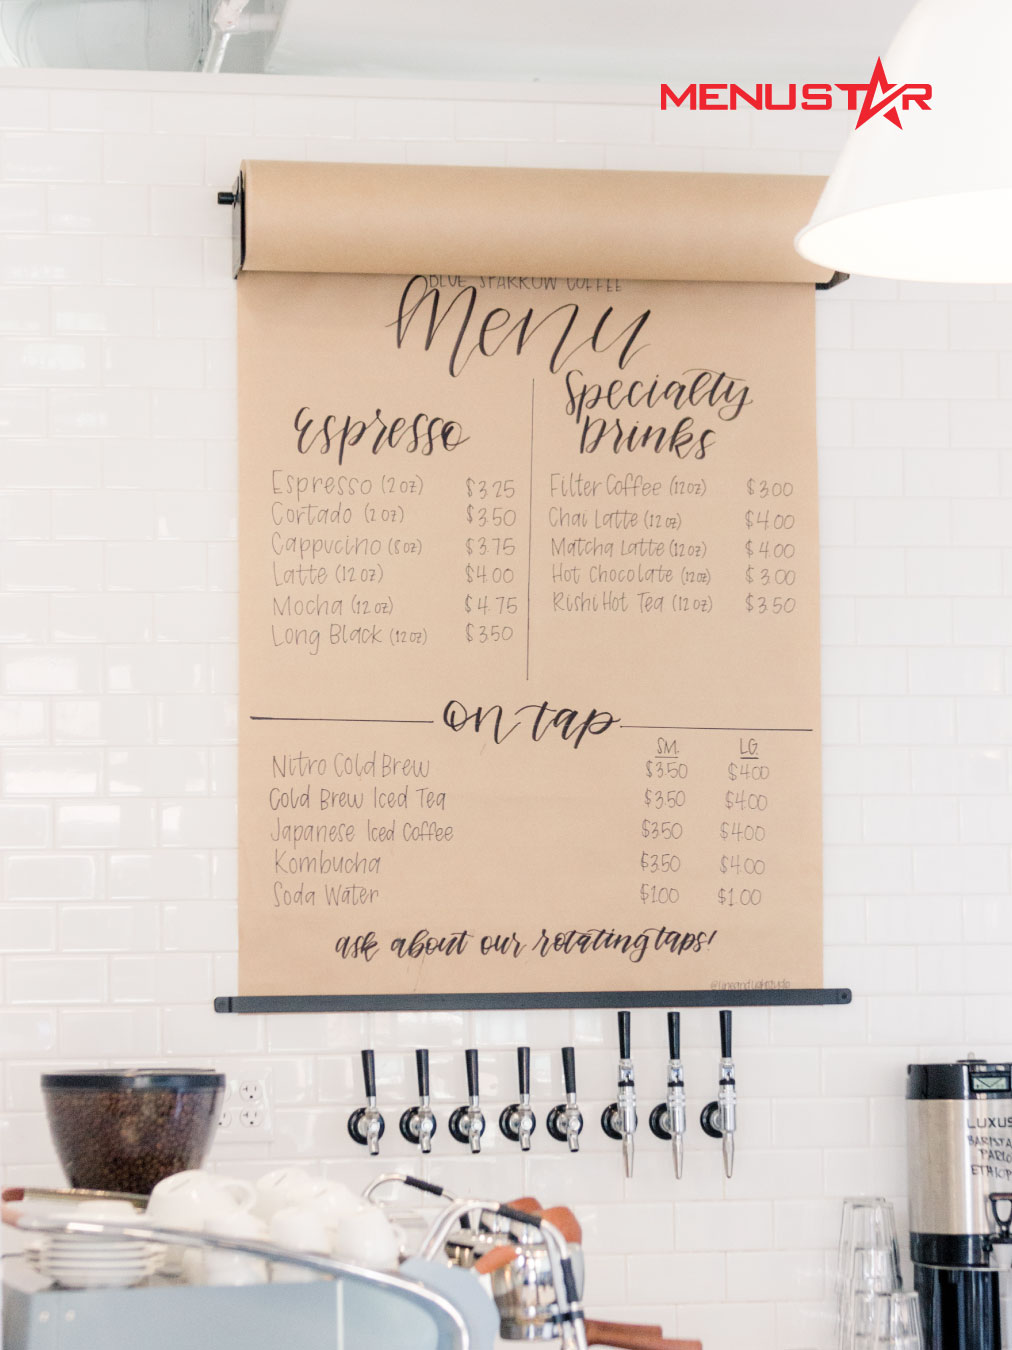 MENUSTAR
BLUE SPARROW COFFEE
Menu
Espresso
Espresso (2 oz) $3.25
Cortado (2 oz) $3.50
Cappucino (8 oz) $3.75
Latte (12 oz) $4.00
Mocha (12 oz) $4.75
Long Black (12 oz) $3.50
Specialty
Drinks
Filter Coffee (12 oz) $3.00
Chai Latte (12 oz) $4.00
Matcha Latte (12 oz) $4.00
Hot Chocolate (12 oz) $3.00
Rishi Hot Tea (12 oz) $3.50
on tap
SM. LG.
Nitro Cold Brew $3.50 $4.00
Cold Brew Iced Tea $3.50 $4.00
Japanese Iced Coffee $3.50 $4.00
Kombucha $3.50 $4.00
Soda Water $1.00 $1.00
ask about our rotating taps!
LUXUS